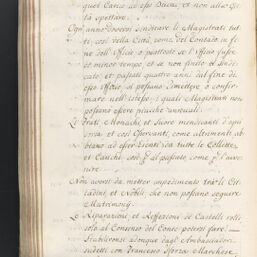 quel Carico ad essi Buoni, et non alla Cit
tà spettare.
Ogn'anno doversi sindicare li Magistrati tut
ti, così della Città, come del Contado, in fi
ne dell'Officio, ò piuttosto se l'Officio fusse
di minor tempo, et se non finito il Sindi
cato, et passati quattro anni dal fine di
esso Officio, si possano rimettere, ò confir
mare nell'istesso; i quali Magistrati non
possano essere più che annuali.
Li Frati, Monache, et Suore mendicanti d'ogni
sorte, et così Osservanti, come altrimenti, ab
biano ad esser Esenti da tutte le Collette,
et Carichi, così p. il passato, come p. l'ave
nire.
Non aversi da metter impedimento tra li Cit
tadini, et Nobili, che non possano seguire
Matrimonij.
Le Riparazioni, et Reffezioni de Castelli
solo al Consenso del Conte potersi fare.
Stabilironsi adunque dagl'Ambasciatori
sudetti con Francesco Sforza Marchese